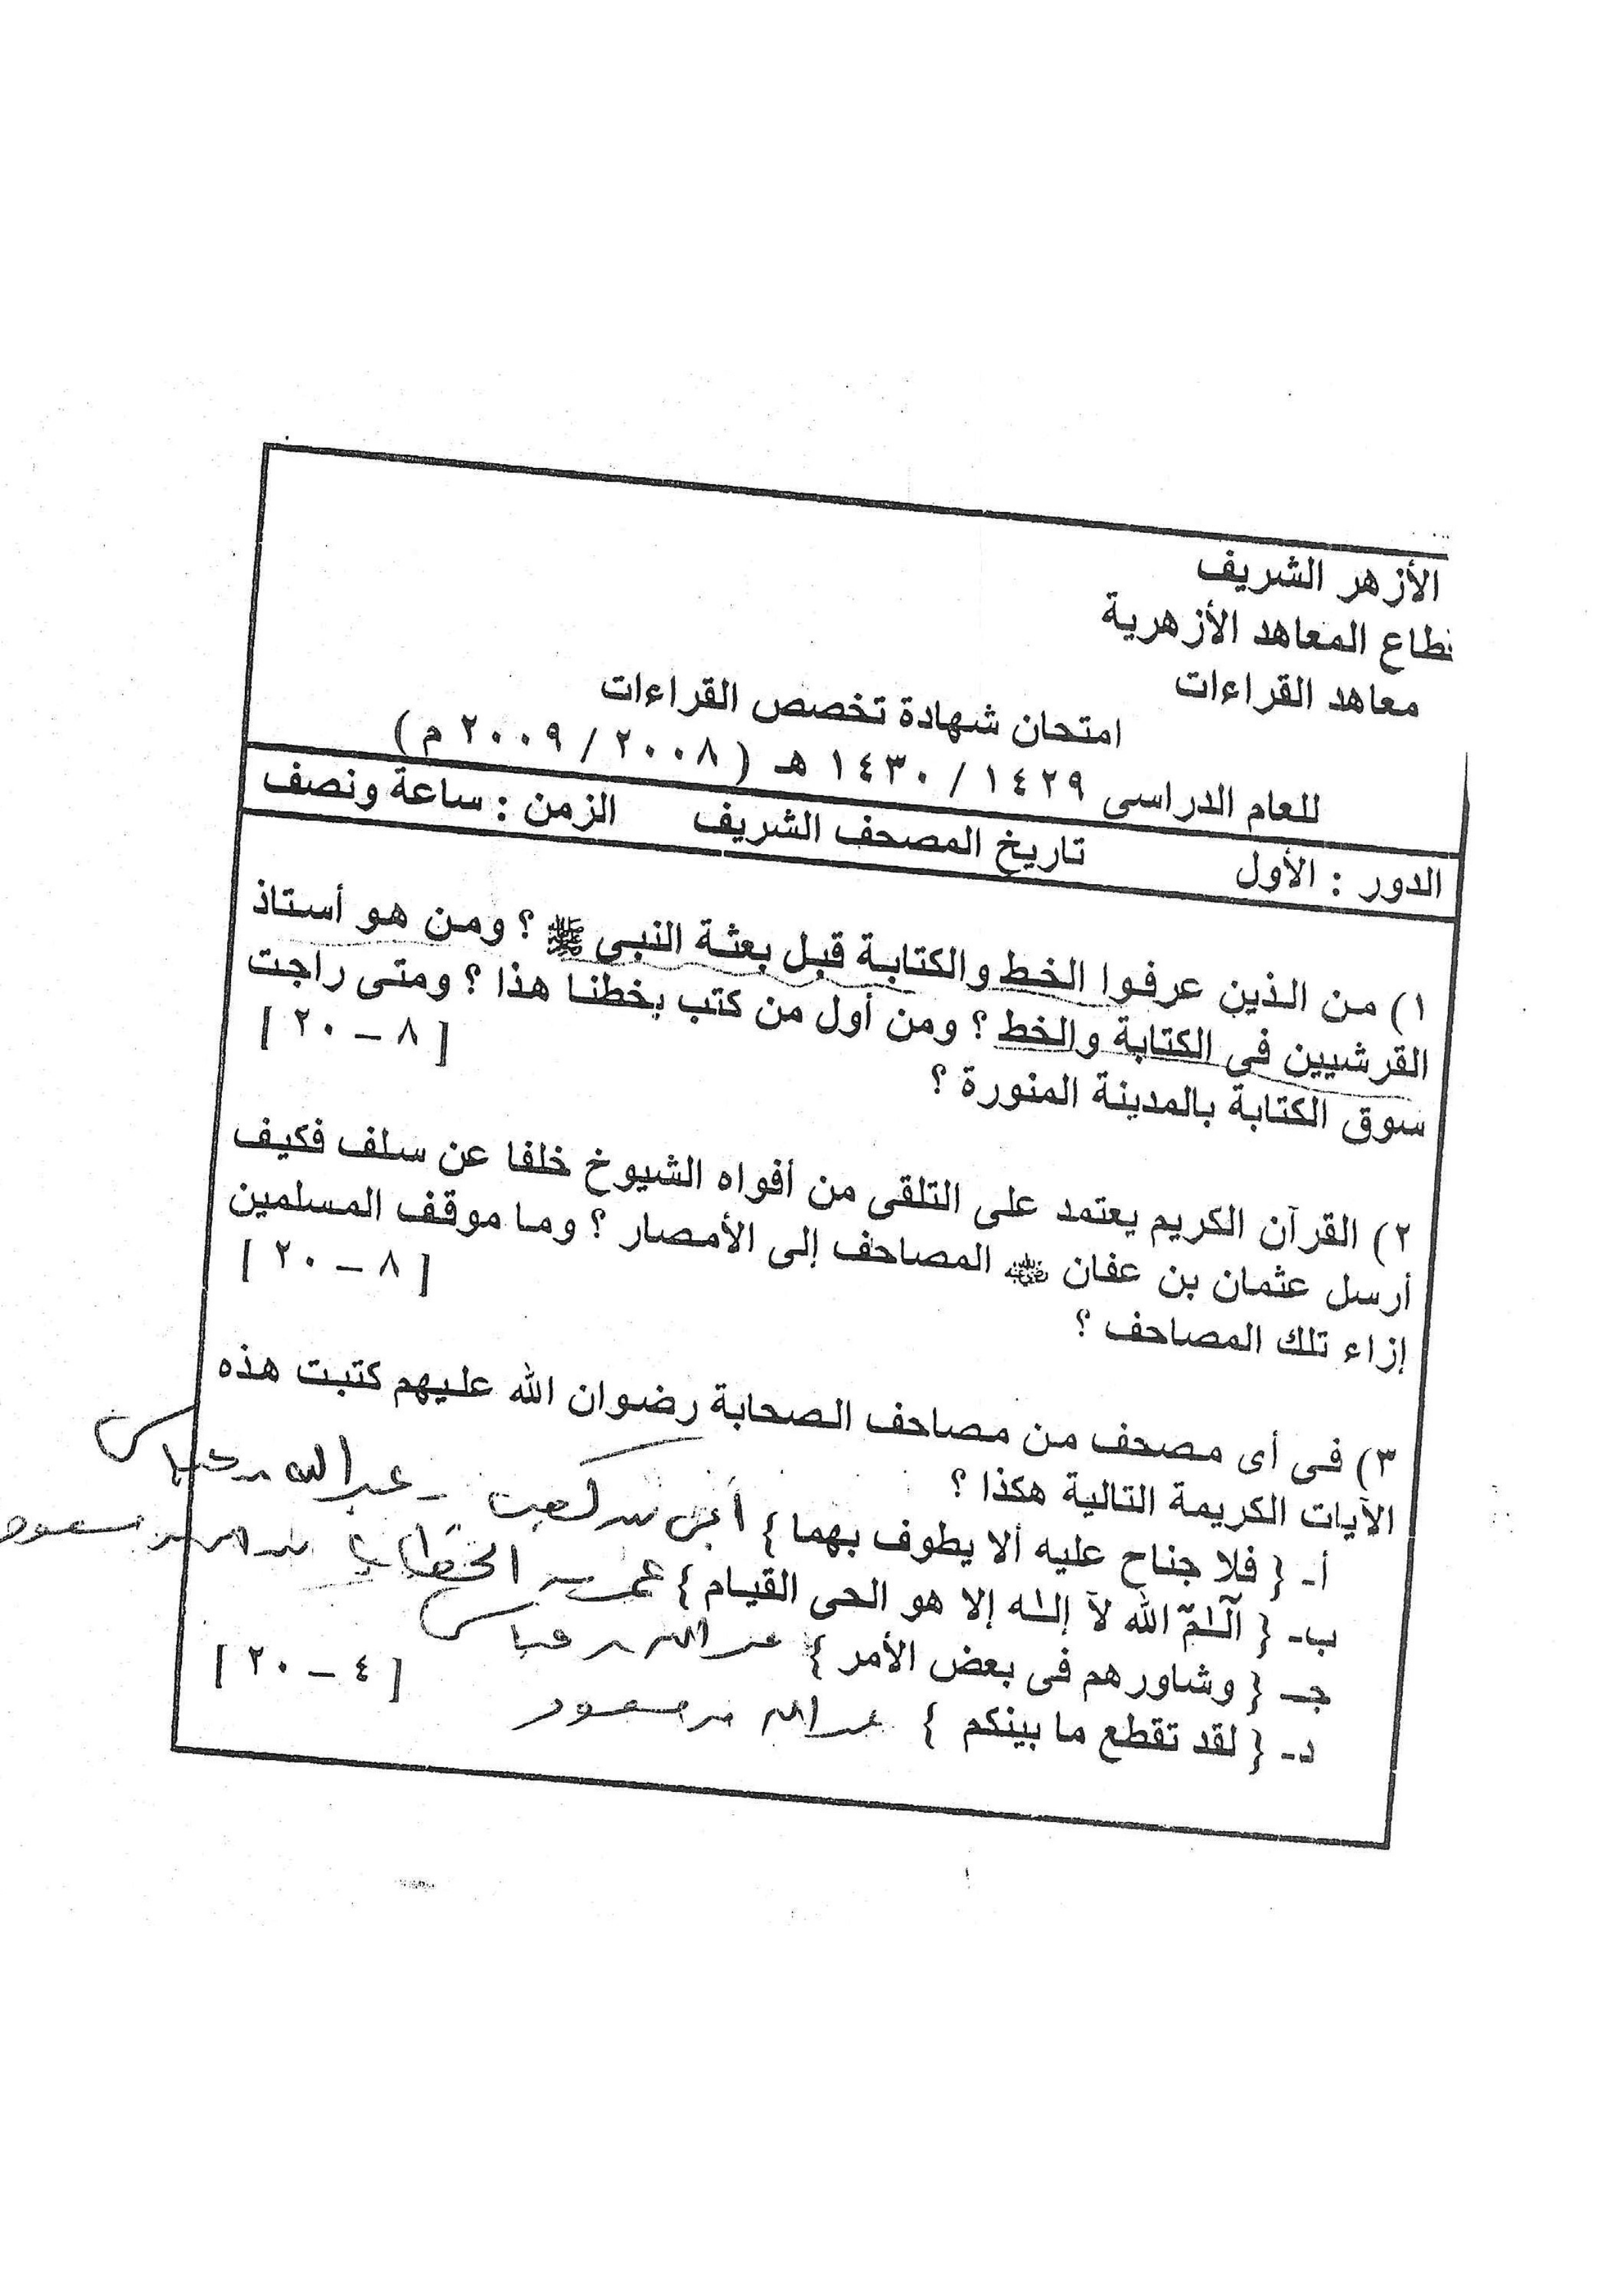 الأزهر الشريف
قطاع المعاهد الأزهرية
معاهد القراءات
امتحان شهادة تخصص القراءات
للعام الدراسى ١٤٢٩ / ١٤٣٠ هـ ( ٢٠٠٨ / ٢٠٠٩ م )
الدور : الأول تاريخ المصحف الشريف الزمن : ساعة ونصف
١) من الذين عرفوا الخط والكتابة قبل بعثة النبى ﷺ ؟ ومن هو أستاذ
القرشيين فى الكتابة والخط ؟ ومن أول من كتب بخطنا هذا ؟ ومتى راجت
سوق الكتابة بالمدينة المنورة ؟ [ ٨ – ٢٠ ]
٢) القرآن الكريم يعتمد على التلقى من أفواه الشيوخ خلفا عن سلف فكيف
أرسل عثمان بن عفان ﷺ المصاحف إلى الأمصار ؟ وما موقف المسلمين
إزاء تلك المصاحف ؟ [ ٨ – ٢٠ ]
٣) فى أى مصحف من مصاحف الصحابة رضوان الله عليهم كتبت هذه
الآيات الكريمة التالية هكذا ؟
أ- { فلا جناح عليه ألا يطوف بهما } أبى بن كعب - عبد الله بن عباس
ب- { آلم الله لآ إله إلا هو الحى القيام } عمر بن الخطاب عبد الله بن مسعود
جـ- { وشاورهم فى بعض الأمر } عبد الله بن عباس
د- { لقد تقطع ما بينكم } عبد الله بن مسعود [ ٤ – ٢٠ ]